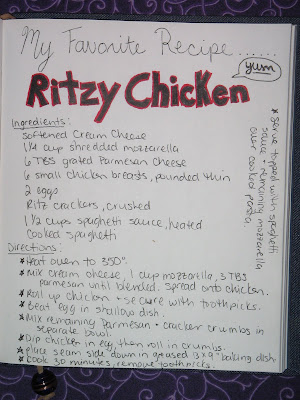 My Favorite Recipe......
yum
Ritzy Chicken
Ingredients:
Softened Cream Cheese
1 1/4 cup shredded mozzarella
6 TBS grated Parmesan Cheese
6 small chicken breasts, pounded thin
2 eggs
Ritz crackers, crushed
1 1/2 cups spaghetti sauce, heated
Cooked spaghetti
Directions:
*Heat oven to 350°
*Mix cream cheese, 1 cup mozzarella, 3 TBS
parmesan until blended. Spread onto chicken.
*Roll up chicken + secure with toothpicks.
*Beat egg in shallow dish.
*Mix remaining Parmesan + cracker crumbs in
separate bowl.
*Dip chicken in egg, then roll in crumbs.
*place seam side down in greased 13x9" baking dish.
*Cook 30 minutes, remove toothpicks.
*Serve topped with spaghetti
sauce + remaining mozzarella
over cooked pasta.